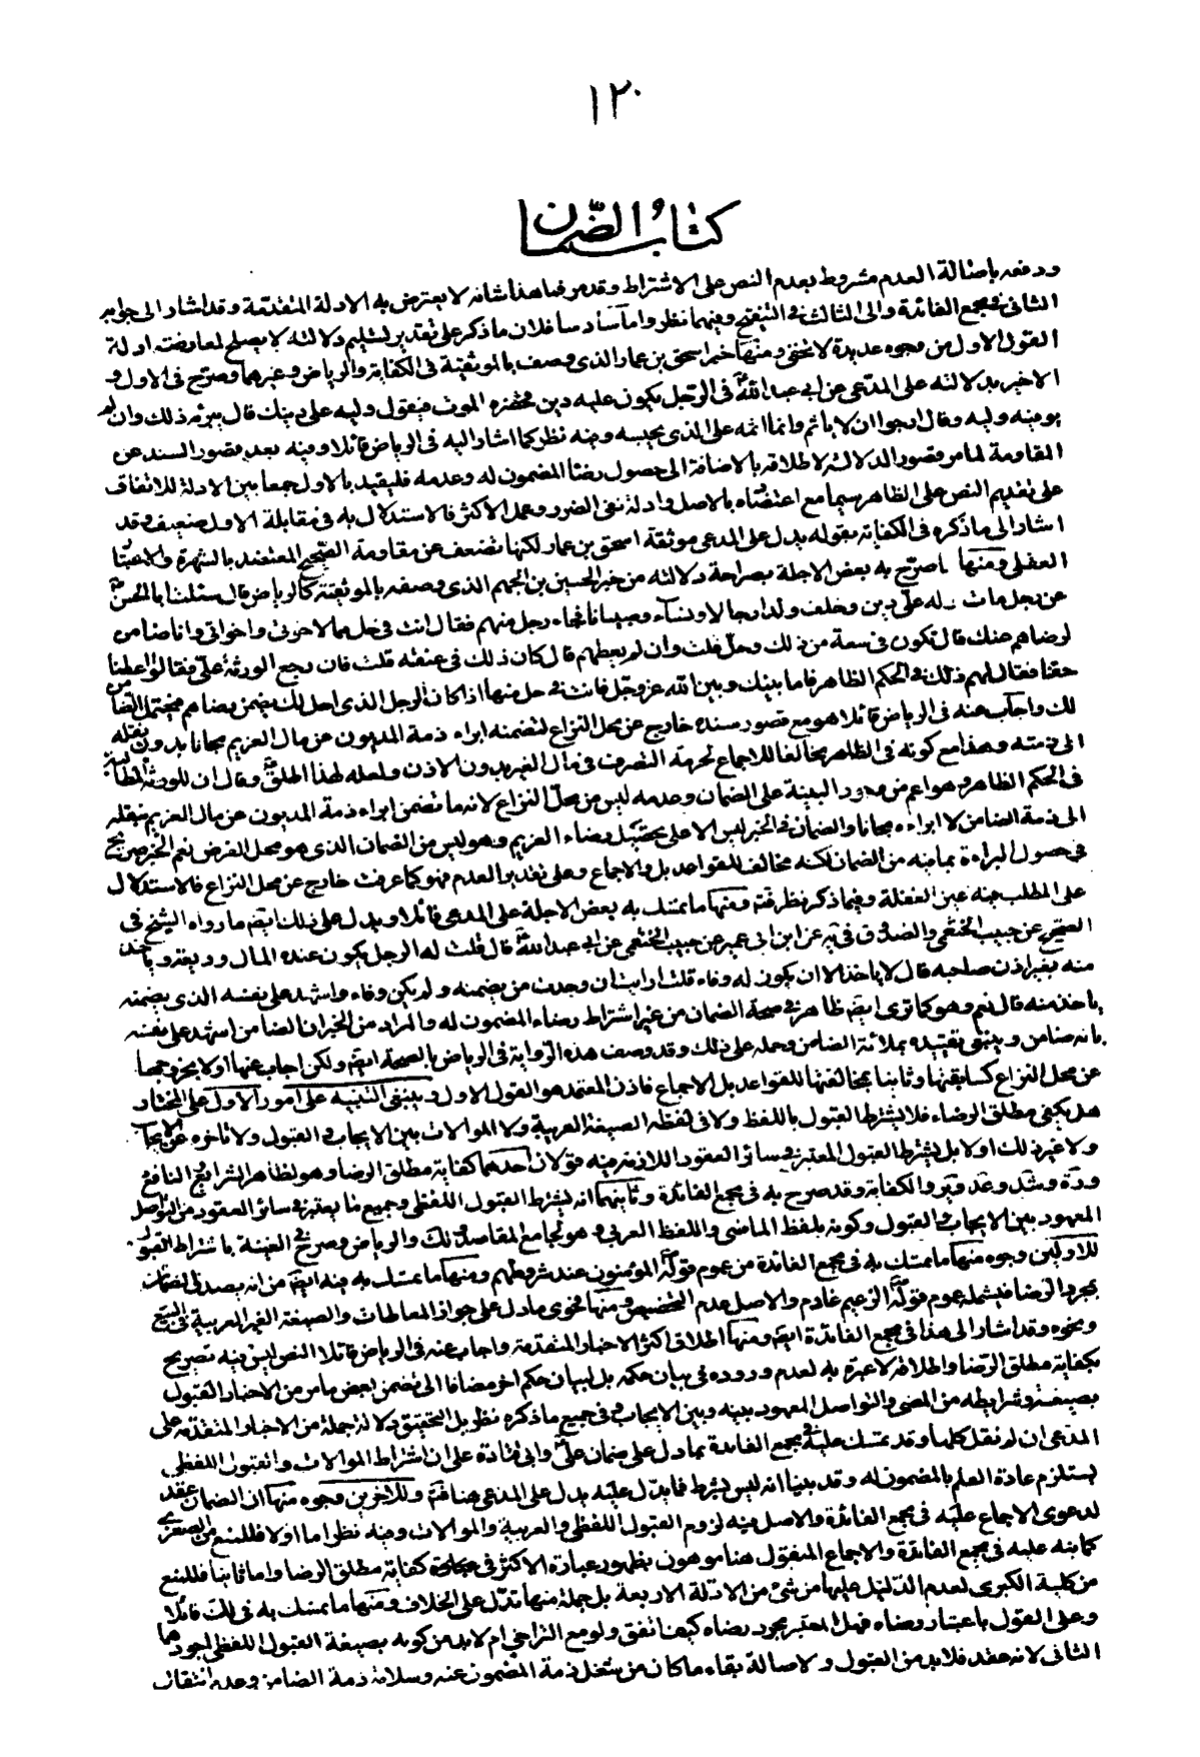 ١٢٠
كتاب الضمان
ودفعه باصالة العدم مشروط بعدم النص على الاشتراط وقد مر فما هذا شانه لا يعترض به الادلة المتقدمة وقد اشار الى جواب
الثانى فى مجمع الفائدة والى الثالث فى التنقيح وفيهما نظر واما سادسا فلان ما ذكر على تقدير تسليم دلالته لا يصلح لمعارضة ادلة
القول الاول من وجوه عديدة لا تخفى ومنها خبر اسحق بن عمار الذى وصف بالموثقية فى الكفاية والرياض وغيرهما وصرح فى الاول و
الاخير بدلالته على المدعى عن ابى عبد الله فى الرجل يكون عليه دين فحضره الموت فيقول وليه على دينك قال يبرئه ذلك وان لم
يوفه وليه وقال ارجوا ان لا ياثم وانما اثمه على الذى يحبسه وفيه نظر كما اشار اليه فى الرياض قائلا وفيه بعد قصور السند عن
المقاومة لما مر قصور الدلالة لاطلاقه بالاضافة الى حصول رضا المضمون له وعدمه فليقيد بالاول جمعا بين الادلة للاتفاق
على تقديم النص على الظاهر سيما مع اعتضاده بالاصل وادلة نفى الضرر وعمل الاكثر فالاستدلال به فى مقابلة الاول ضعيف وقد
اشار الى ما ذكره فى الكفاية بقوله يدل على المدعى موثقة اسحق بن عمار لكنها تضعف عن مقاومة الصحيح المعتضد بالشهرة والاعتبار
العقلى ومنها ما صرح به بعض الاجلة بصراحة دلالته من خبر الحسين بن الجهم الذى وصفه بالموثقية كالرياض قال سئلت ابا الحسن
عن رجل مات وله على دين وخلف ولدا رجالا ونساء وصبيانا فجاء رجل منهم فقال انت فى حل مما لاخوتى واخواتى وانا ضامن
لرضاهم عنك قال تكون فى سعة من ذلك وحل قلت وان لم يعطهم قال كان ذلك فى عنقه قلت فان رجع الورثة على فقالوا اعطنا
حقنا فقال لهم ذلك فى الحكم الظاهر فاما بينك وبين الله عز وجل فانت فى حل منها اذا كان الرجل الذى احل لك يضمن رضاهم فيحتمل الضامن
لك واجاب عنه فى الرياض قائلا هو مع قصور سنده خارج عن محل النزاع لتضمنه ابراء ذمة المديون عن مال الغريم مجانا بدون نقله
الى ذمته وهذا مع كونه فى الظاهر مخالفا للاجماع لحرمة التصرف فى مال الغير بدون الاذن ولعله لهذا اطلق وقال ان للورثة المطالبة
فى الحكم الظاهر وهو اعم من صدور البينة على الضمان وعدمه ليس من محل النزاع لانه ما تضمن ابراء ذمة المديون عن مال الغريم بنقله
الى ذمة الضامن لا ابراءه مجانا والضمان فى الخبر ليس الا على تحصيل رضاء الغريم وهو ليس من الضمان الذى هو محل الفرض نعم الخبر صريح
فى حصول البراءة بما فيه من الضمان لكنه مخالف للقواعد بل والاجماع وعلى تقدير العدم فهو كما عرفت خارج عن محل النزاع فالاستدلال
على المطلب منه عين الغفلة وفيما ذكر نظر فتم ومنها ما تمسك به بعض الاجلة على المدعى قائلا ويدل على ذلك ايضا ما رواه الشيخ فى
الصحيح عن حبيب الخثعمى والصدوق فى يه عن ابن ابى عمير عن حبيب الخثعمى عن ابى عبد الله قال قلت له الرجل يكون عنده المال وديعة وياخذ
منه بغير اذن صاحبه قال لا ياخذ الا ان يكون له وفاء قلت ارايت ان وجدت من يضمنه ولم يكن وفاء واشهد على نفسه الذى يضمنه
ياخذ منه قال نعم وهو كما ترى ايضا ظاهر فى صحة الضمان من غير اشتراط رضاء المضمون له والمراد من الخبر ان الضامن اشهد على نفسه
بانه ضامن وينبغى تقييده بملائة الضامن وحمله على ذلك وقد وصف هذه الرواية فى الرياض بالصحة ايضا ولكن اجاب عنها اولا بخروجها
عن محل النزاع كسابقتها وثانيا بمخالفتها للقواعد بل الاجماع فاذن المعتمد هو القول الاول وينبغى التنبيه على امور الاول على المختار
هل يكفى مطلق الرضاء فلا يشترط القبول باللفظ ولا فى لفظه الصيغة العربية ولا الموالات بين الايجاب والقبول ولا تاخره عن الايجاب
ولا غير ذلك او لا بل يشترط القبول المعتبر فى سائر العقود اللازمة فيه قولان احدهما كفاية مطلق الرضا وهو لظاهر الشرائع والنافع
وعد وشد وعد وير والكفاية وقد صرح به فى مجمع الفائدة وثانيهما انه يشترط القبول اللفظى وجميع ما يعتبر فى سائر العقود من التواصل
المعهود بين الايجاب والقبول وكونه بلفظ الماضى واللفظ العربى وهو لجامع المقاصد ولك والرياض وصريح الغنية باشتراط القبول
للاولين وجوه منها ما تمسك به فى مجمع الفائدة من عموم قوله المؤمنون عند شروطهم ومنها ما تمسك به فيه ايضا من انه يصدق الضمان
بمجرد الرضا فيشمله عموم قوله الزعيم غارم والاصل عدم التخصيص ومنها فحوى ما دل على جواز المعاطات والصيغة الغير العربية فى البيع
ونحوه وقد اشار الى هذا فى مجمع الفائدة ايضا ومنها اطلاق اكثر الاخبار المتقدمة واجاب عنه فى الرياض قائلا النص ليس فيه تصريح
بكفاية مطلق الرضا واطلاقه لا عبرة به لعدم وروده فى بيان حكمه بل لبيان حكم اخر مضافا الى تضمن بعض ما مر من الاخبار القبول
بصيغة وشرايطه من المضى والتواصل المعهود بينه وبين الايجاب وفى جميع ما ذكره نظر بل التحقيق دلالة جملة من الاخبار المتقدمة على
المدعى ان لم نقل كلها وقد تمسك عليه فى مجمع الفائدة بما دل على ضمان على وابى قتادة على ان اشتراط الموالات والقبول اللفظى
يستلزم عادة العلم بالمضمون له وقد بينا انه ليس بشرط فما يدل عليه يدل على المدعى هنا فتم وللاخرين وجوه منها ان الضمان عقد
لدعوى الاجماع عليه فى مجمع الفائدة والاصل فيه لزوم القبول اللفظى والعربية والموالات وفيه نظر اما اولا فللمنع من الصغرى
كما نبه عليه فى مجمع الفائدة والاجماع المنقول هنا موهون بظهور عبارة الاكثر فى كفاية مطلق الرضا واما ثانيا فللمنع
من كلية الكبرى لعدم الدليل عليها من شئ من الادلة الاربعة بل جملة منها تدل على الخلاف ومنها ما تمسك به فى لك قائلا
وعلى القول باعتبار رضاه فهل المعتبر مجرد رضاه كيف اتفق ولو مع التراخى ام لا بد من كونه بصيغة القبول اللفظى اجودهما
الثانى لانه عقد فلا بد من القبول ولاصالة بقاء ما كان من شغل ذمة المضمون عنه وسلامة ذمة الضامن وعدم انتقال